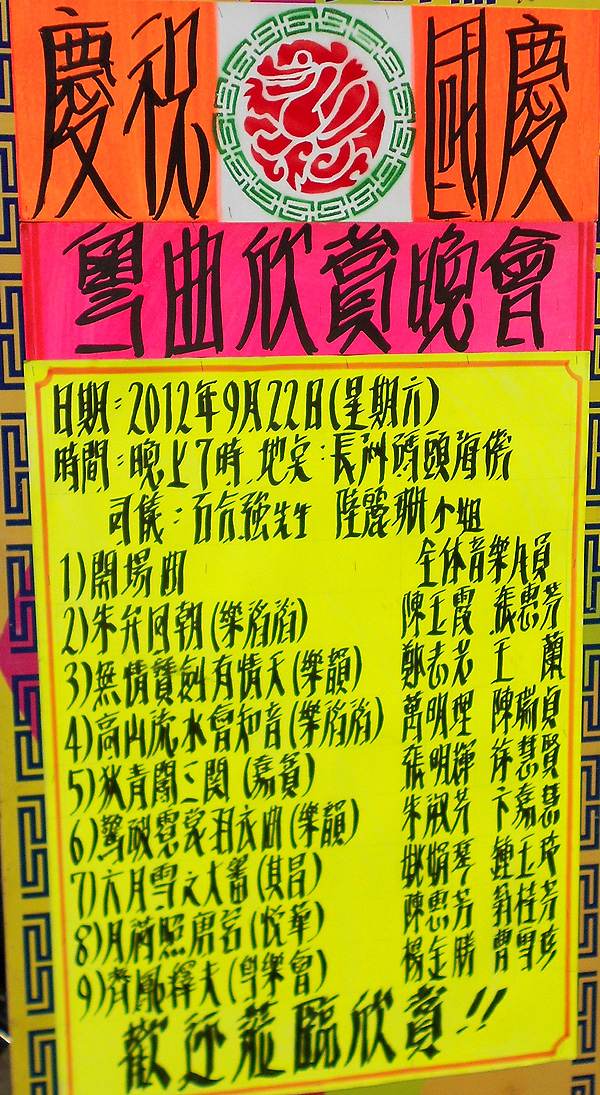 慶祝 國慶
粵曲欣賞晚會
日期：2012年9月22日(星期六)
時間：晚上7時 地点：長洲碼頭海傍
司儀：百合強先生 陸麗珊小姐
1)開場曲 全体音樂人員
2)朱弁回朝(樂滔滔) 陳玉霞 張惠芳
3)無情寶劍有情天(樂韻) 鄭志光 王蘭
4)高山流水會知音(樂滔滔) 萬明理 陳瑞貞
5)狄青闖三關(嘉賓) 張明輝 徐慧賢
6)驚破霓裳羽衣曲(樂韻) 朱淑芳 卞嘉慧
7)六月雪之大審(其昌) 姚娟琴 鍾玉玲
8)月滿照唐宮(悅華) 陳惠芳 翁桂芳
9)齊鳳釋夫(粵樂會) 楊金勝 曹雪珍
歡迎蒞臨欣賞!!